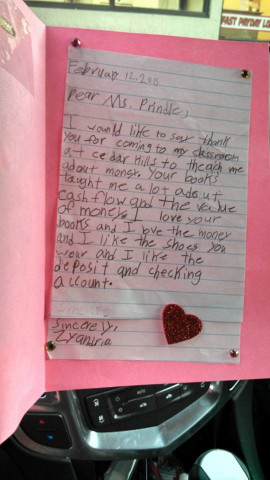 FAST PAYDAY LO
February 12, 2015
Dear Ms. Prindle,
I would like to say thank
you for coming to my classroom
at cedar Hills to theach me
adout money. Your books
taught me a lot adout
cash flow and the value
of money. I love your
books and I love the money
and I like the shoes you
wear and I like the
deposit and checking
account.
Sincerely,
Zyandria